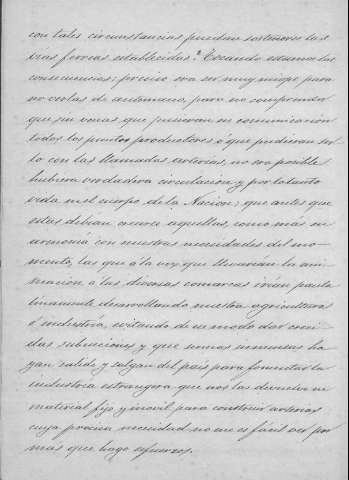 con tales circunstancias puedan sostenerse las
vias ferreas establecidas? Tocando estamos las
consecuencias; preciso era ser muy miope para
no verlas de antemano, para no comprender
que sin venas que pusieran en comunicación
todos los puntos productores ó que pudieran ser
lo con las llamadas arterias, no era posible
hubiera verdadera circulacion y por lo tanto
vida en el cuerpo de la Nacion; que antes que
estas debian crearse aquellas, como más en
armonía con nuestras necesidades del mo-
mento, las que á la vez que llevarían la ani-
macion á las diversas comarcas irían paula
tinamente desarrollando nuestra agricultura
é industria, evitando de ese modo dar creci-
das subvenciones y que sumas inmensas ha
yan salido y salgan del país para fomentar la
industria estrangera que nos las devuelve en
material fijo y movil para construir arterias
cuya precisa necesidad no me es fácil ver por
mas que hago esfuerzos.